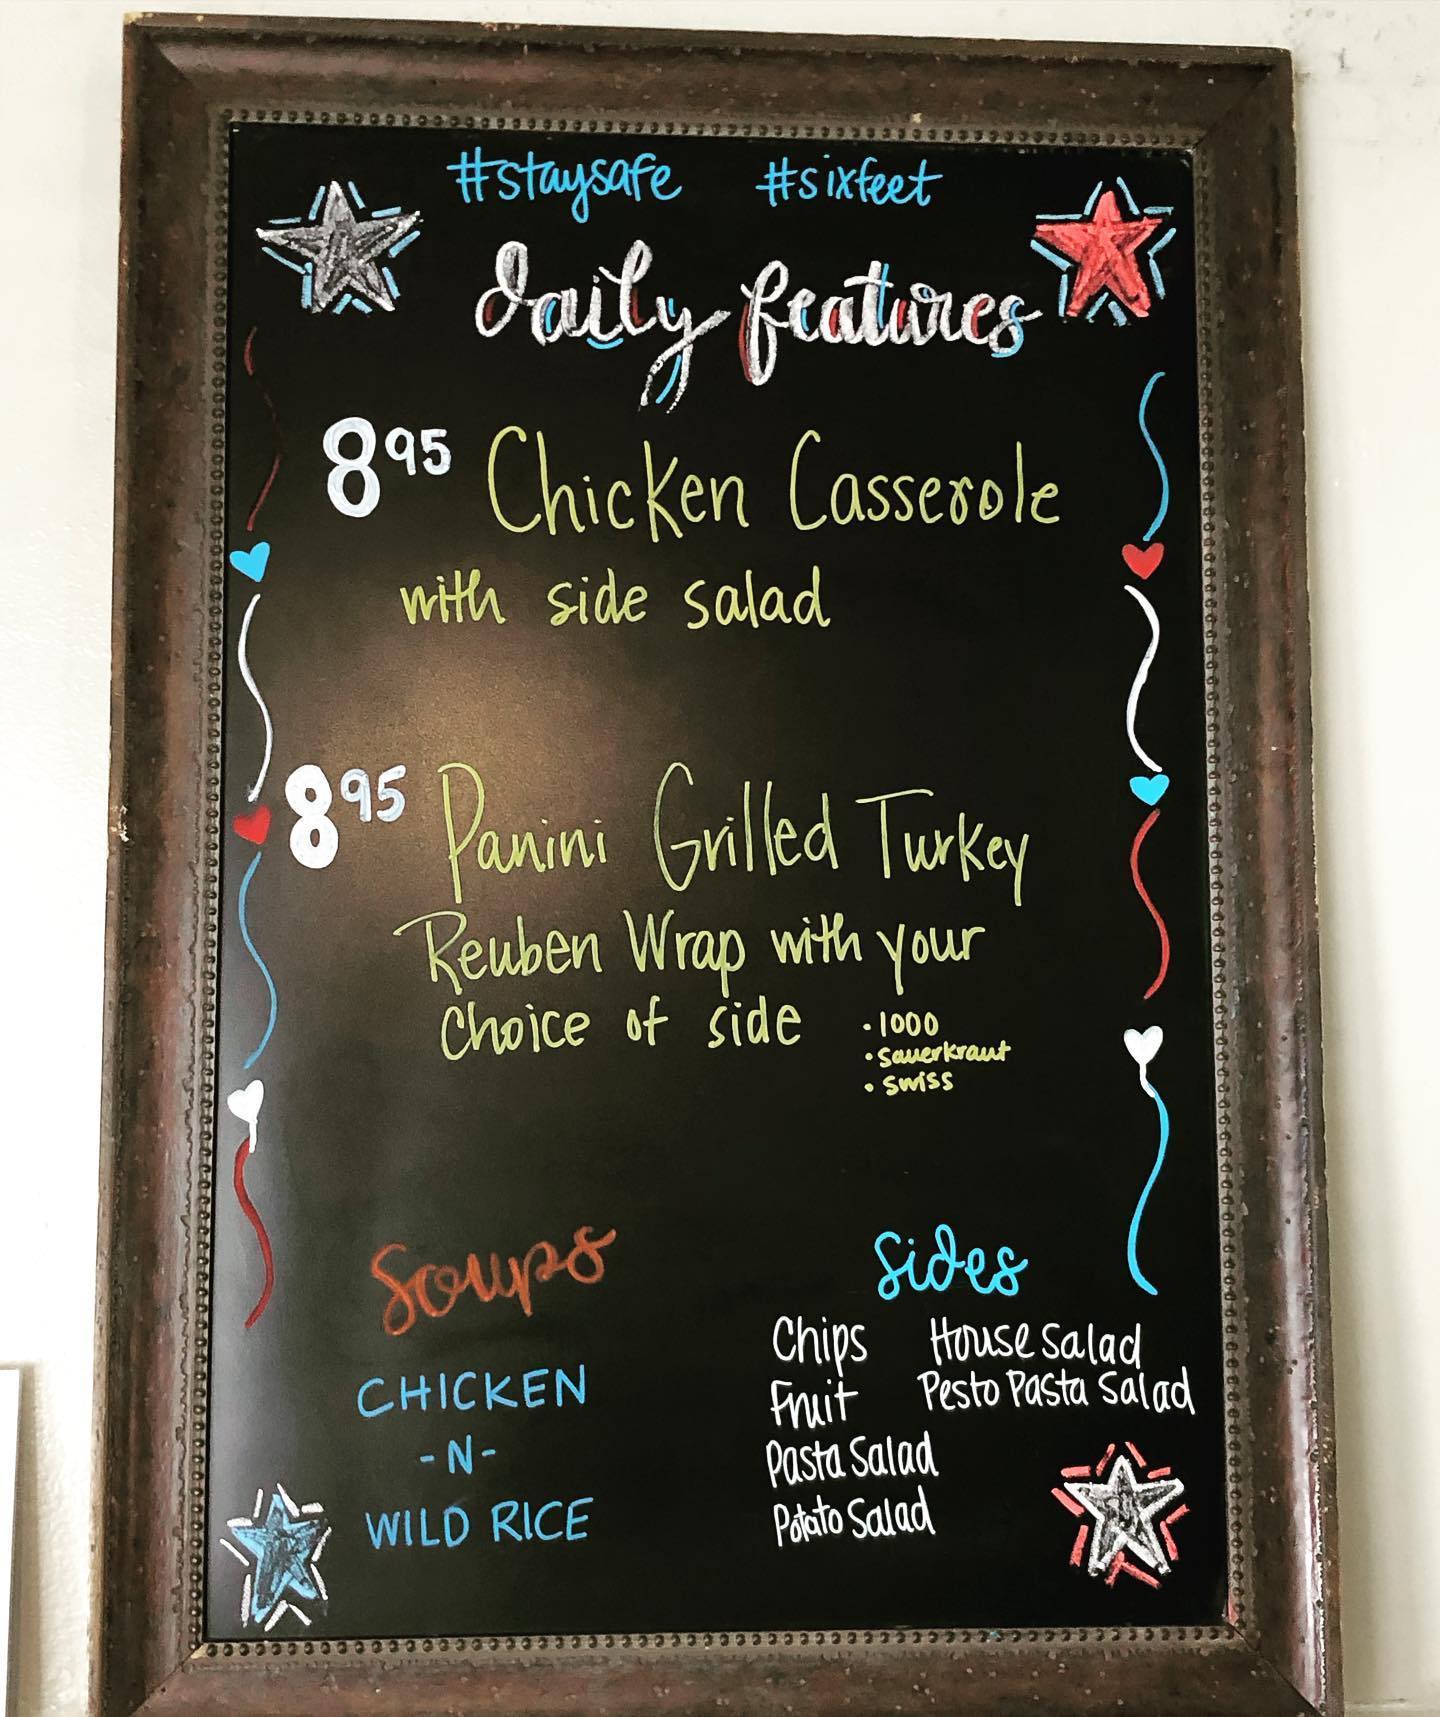 #staysafe #sixfeet
daily features
8 95 Chicken Casserole
with side salad
8 95 Panini Grilled Turkey
Reuben Wrap with your
choice of side
• 1000
• sauerkraut
• swiss
Soups
CHICKEN
-N-
WILD RICE
Sides
Chips House Salad
Fruit Pesto Pasta Salad
Pasta Salad
Potato Salad